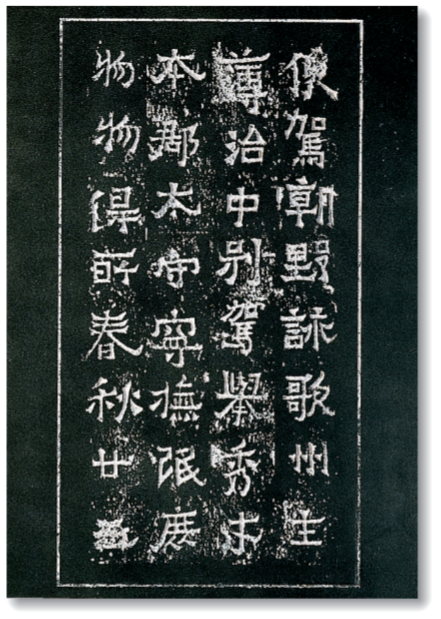 俟駕朝野詠歌州主
簿治中別駕舉秀才
本郡太守寧撫氓庶
物物得所春秋廿五